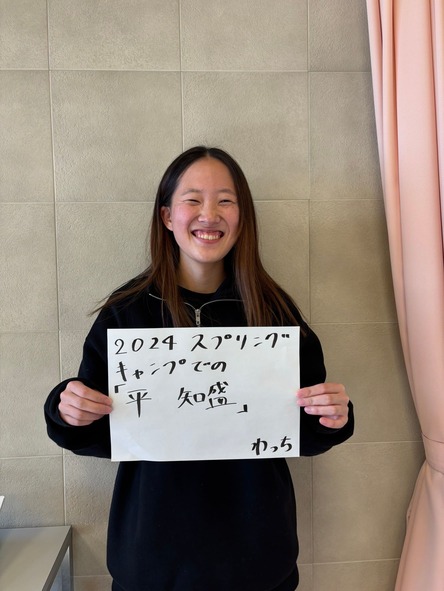 2024 スプリング
キャンプでの
「平 知盛」
わっち